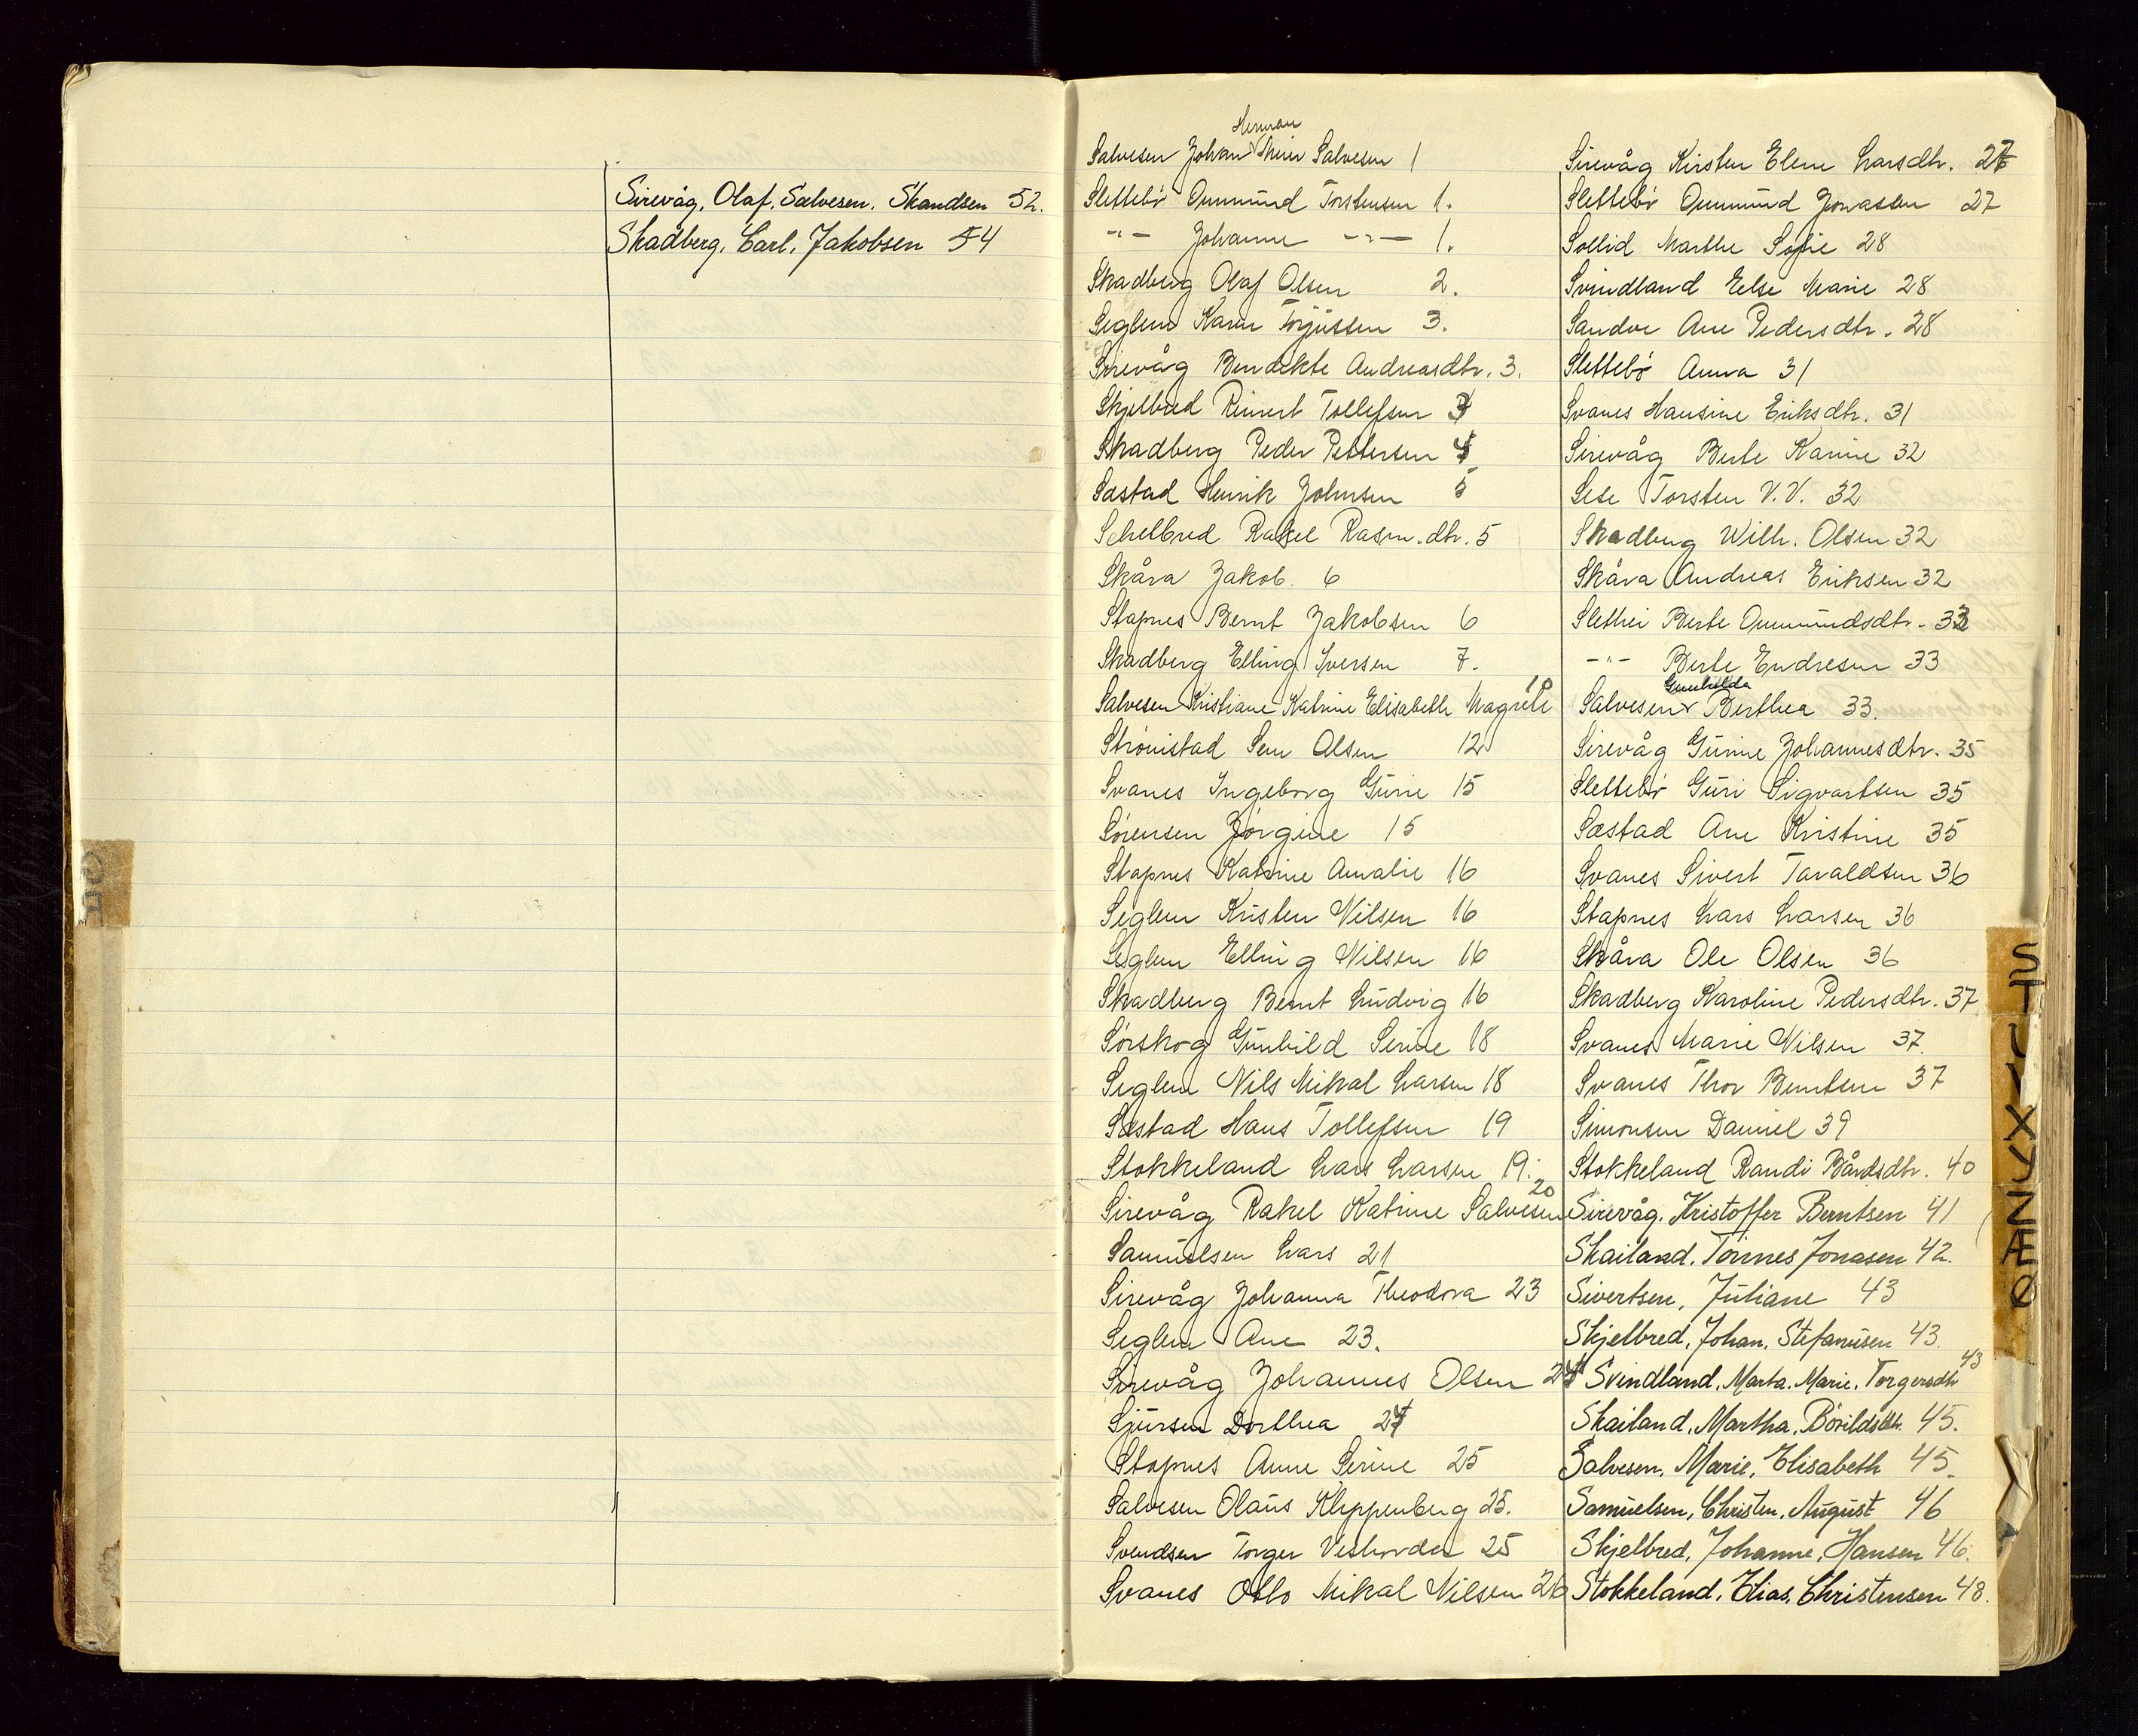 Sirevåg, Olaf, Salvesen, Skandsen 52.
Skadberg, Carl, Jakobsen 54
Herman
Salvesen Johan Meier Salvesen 1
Slettebö Ommund Torstensen 1.
-"- Johanne -"- 1.
Skadberg Olaf Olsen 2.
Seglem Karen Torjussen 3.
Sirevåg Bendikte Andreasdtr. 3.
Skjelbred Reinert Tollefsen 3
Skadberg Peder Pettersen 4
Sæstad Henrik Johnsen 5
Schelbred Rakel Rasm.dtr. 5
Skåra Jakob. 6
Stapnes Bernt Jakobsen 6
Skadberg Elling Iversen 7.
Salvesen Kristiane Katrine Elisabeth Magrete 10
Strömstad Sem Olsen 12
Svanes Ingeborg Gurie 15
Sörensen Jörgine 15
Stapnes Katrine Amalie 16
Seglem Kristen Nilsen 16
Seglem Elling Nilsen 16
Skadberg Bernt Ludvig 16
Sörskog Gunhild Serine 18
Seglem Nils Mikal Larsen 18
Sæstad Hans Tollefsen 19
Stokkeland Lars Larsen 19.
Sirevåg Rakel Katrine Salvesen 20
Samuelsen Lars 21
Sirevåg Johanna Theodora 23
Seglem Ane 23.
Sirevåg Johannes Olsen 24
Sjursen Dorthea 24
Stapnes Anne Serine 25
Salvesen Olaus Kleppenberg 25.
Svendsen Torger 25
Svanes Otto Mikal Nilsen 26
Sirevåg Kirsten Elene Larsdtr. 26
Slettebö Ommund Jonassen 27
Sollid Marthe Sofie 28
Svindland Else Marie 28
Sandve Ane Pedersdtr. 28
Slettebö Anna 31
Svanes Hansine Eriksdtr. 31
Sirevåg Berte Karine 32
Sese Torsten V.V. 32
Skadberg Wilh. Olsen 32
Skåra Andreas Eriksen 32
Slethei Berte Ommundsdtr. 33
-"- Berte Endresen 33
Gunhilda
Salvesen Berthea 33.
Sirevåg Gurine Johannesdtr. 35
Slettebö Guri Sigvartsen 35
Sæstad Ane Kristine 35
Svanes Sivert Tavaldsen 36
Stapnes Lars Larsen 36
Skåra Ole Olsen 36
Skadberg Karoline Pedersdtr. 37
Svanes Marie Nilsen 37.
Svanes Thor Berntsen 37
Simonsen Daniel 39
Stokkeland Randi Bårdsdtr. 40
Sirevåg, Kristoffer Berntsen 41
Skailand, Tönnes Jonasen 42.
Sivertsen, Juliane 43
Skjelbred, Johan, Stefanusen 43.
Svindland, Marta, Marie, Torgersdtr 43
Skailand, Martha, Bövildsdtr. 45.
Salvesen, Marie, Elisabeth 45.
Samuelsen, Christen, August 46
Skjelbred, Johanne, Hansen 46.
Stokkeland, Elias, Christensen 48.
S
T
U
V
X
Y
Z
Æ
Ø